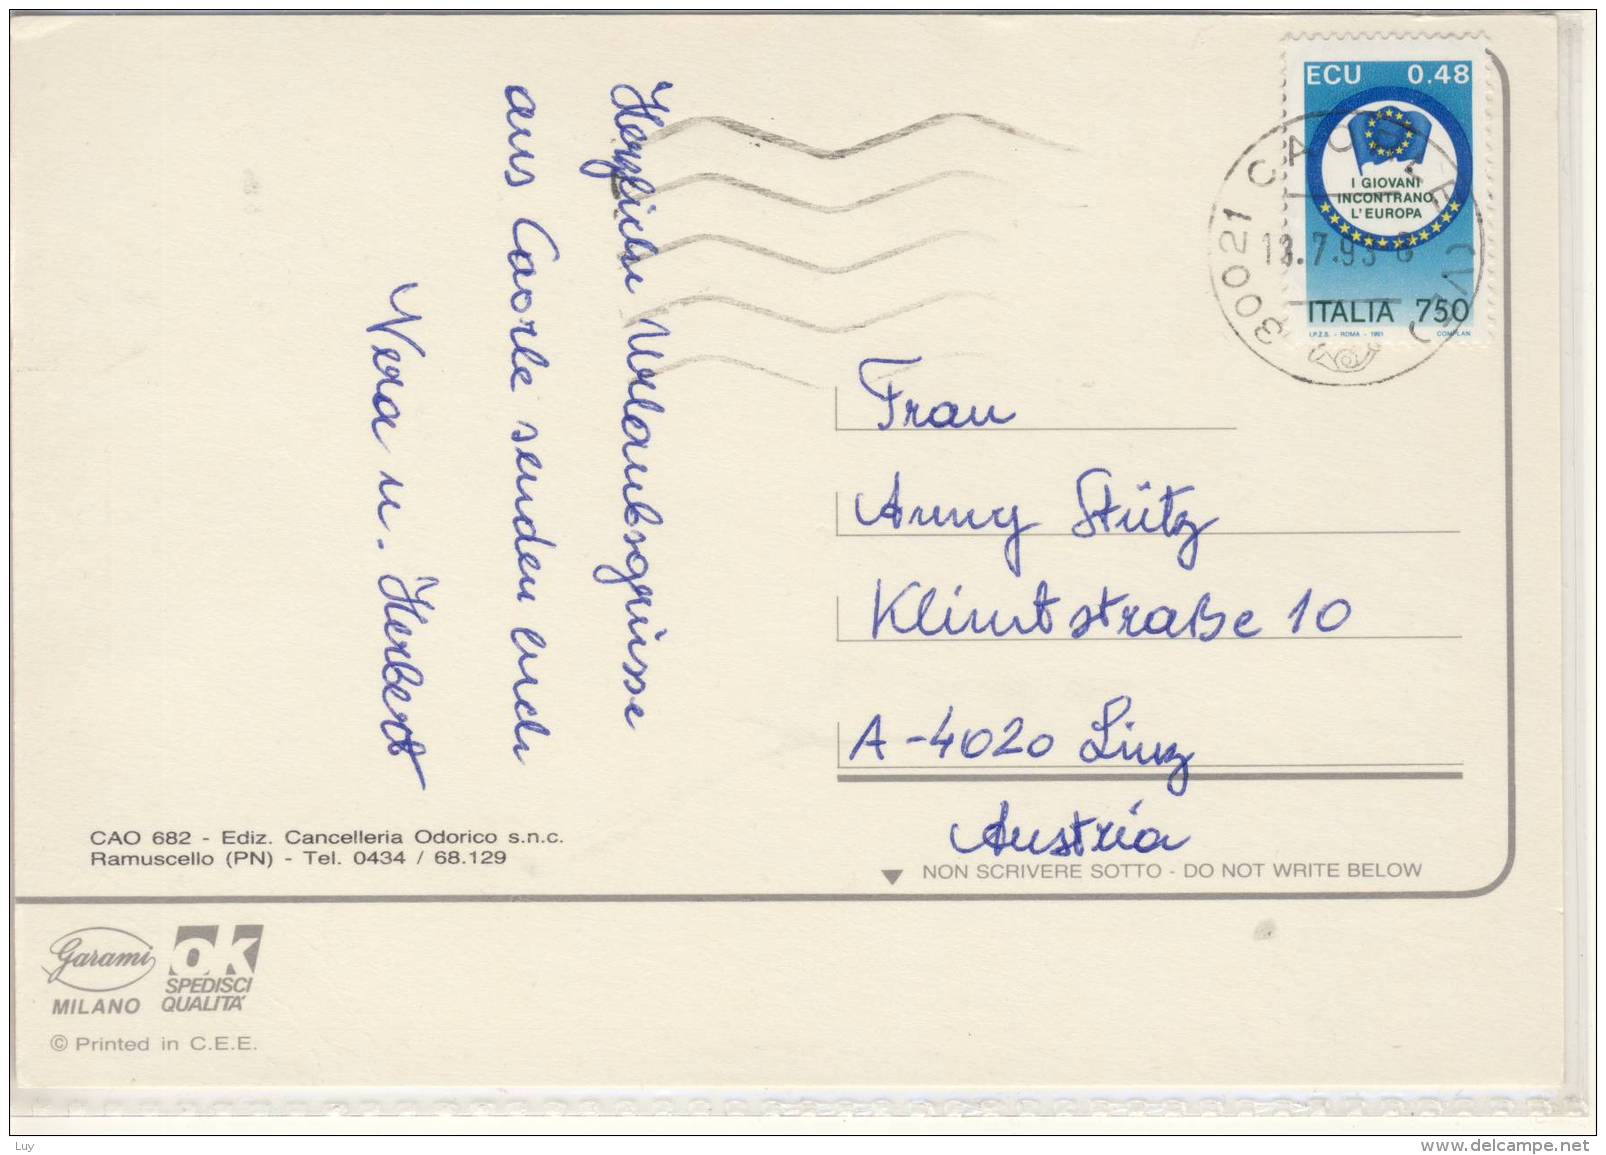 Herzliche Urlaubsgrüsse
aus Caorle senden euch
Vera u. Herbert
ECU 0.48
I GIOVANI
INCONTRANO
L'EUROPA
ITALIA 750
I.P.Z.S. - ROMA - 1991 COMPLAN
30021 CAORLE (VE)
13.7.93-8
Frau
Anny Stütz
Klimtstraße 10
A-4020 Linz
Austria
NON SCRIVERE SOTTO - DO NOT WRITE BELOW
CAO 682 - Ediz. Cancelleria Odorico s.n.c.
Ramuscello (PN) - Tel. 0434 / 68.129
Garami
MILANO
ok
SPEDISCI
QUALITA'
© Printed in C.E.E.
Luy
www.delcampe.net